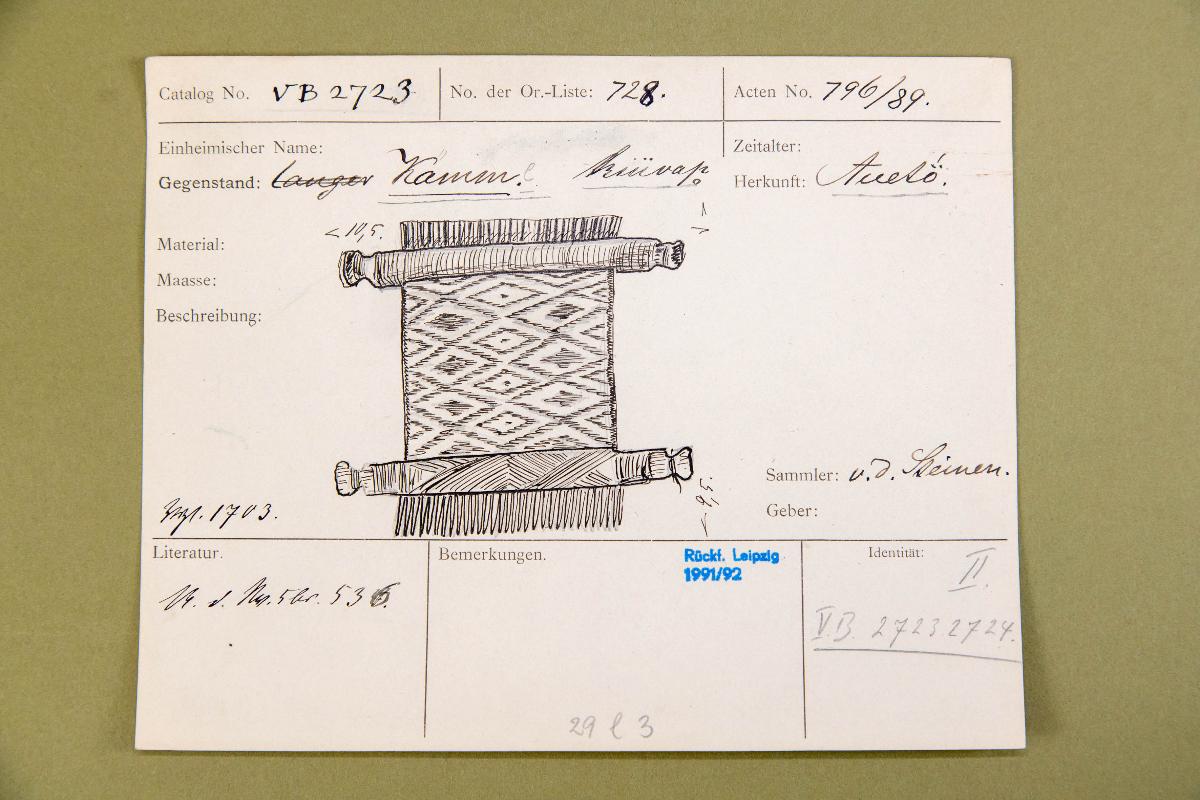 Catalog No. VB 2723
No. der Or.-Liste: 728.
Acten No. 796/89.
Einheimischer Name:
Zeitalter:
Gegenstand: langer Kamm.
Herkunft: Auetö́.
< 10,5.
Material:
Maasse:
Beschreibung:
Sammler: v. d. Steinen.
Geber:
1703.
Literatur.
Bemerkungen.
Rückf. Leipzig
1991/92
Identität:
II.
V.B. 2723 2724.
29 l 3